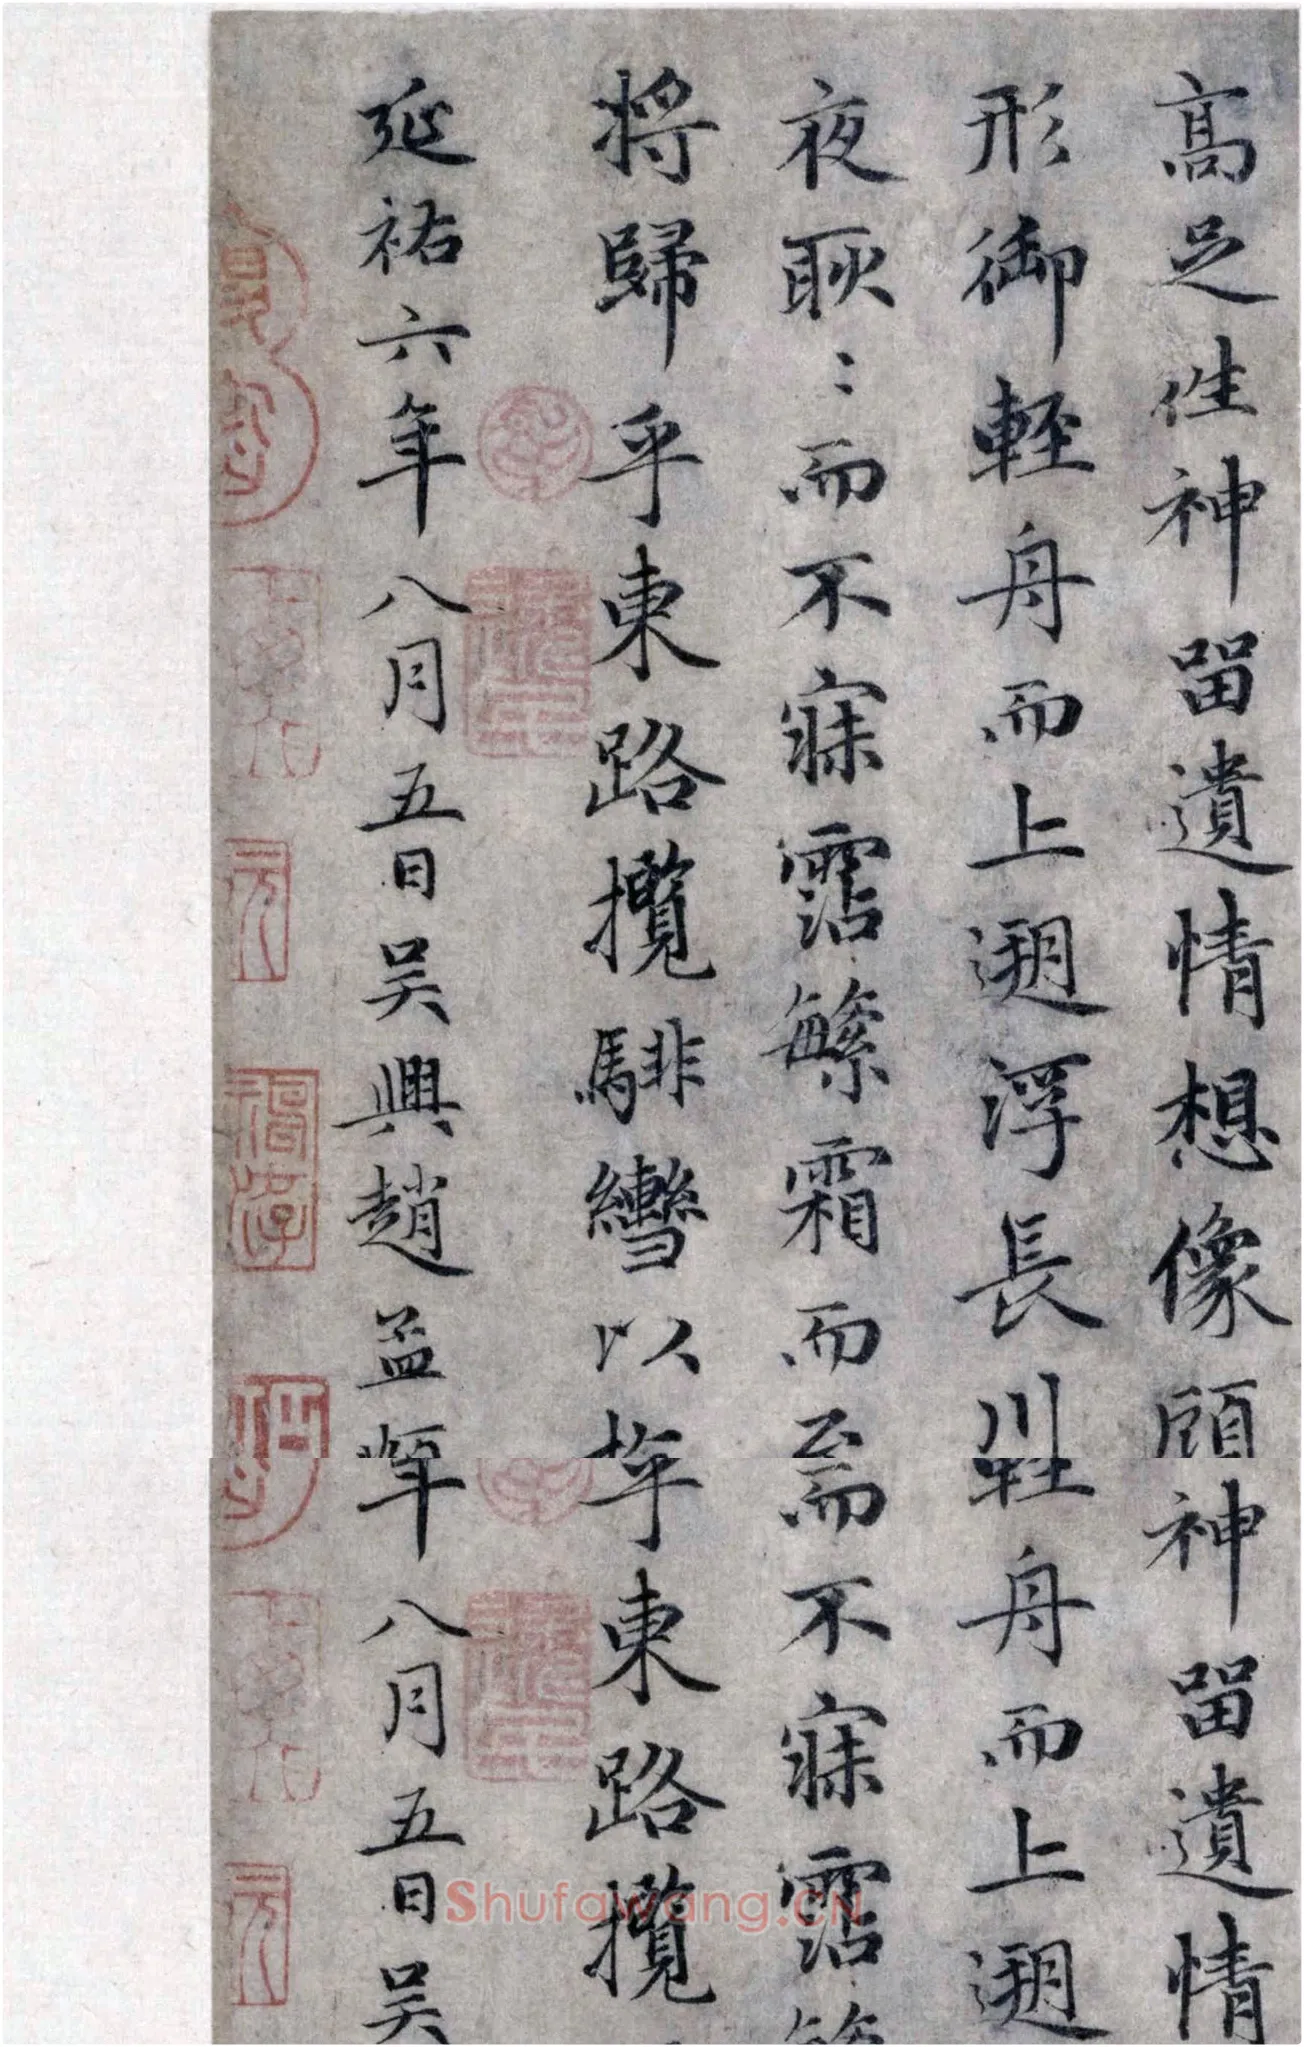 高足往神留遺情想像顧神留遺情
形御輕舟而上遡浮長川輕舟而上遡
夜耿〻而不寐霑繁霜而至而不寐霑
将歸乎東路攬騑轡以東路攬
延祐六年八月五日吴興趙孟年八月五日吴
Shufawang.CN